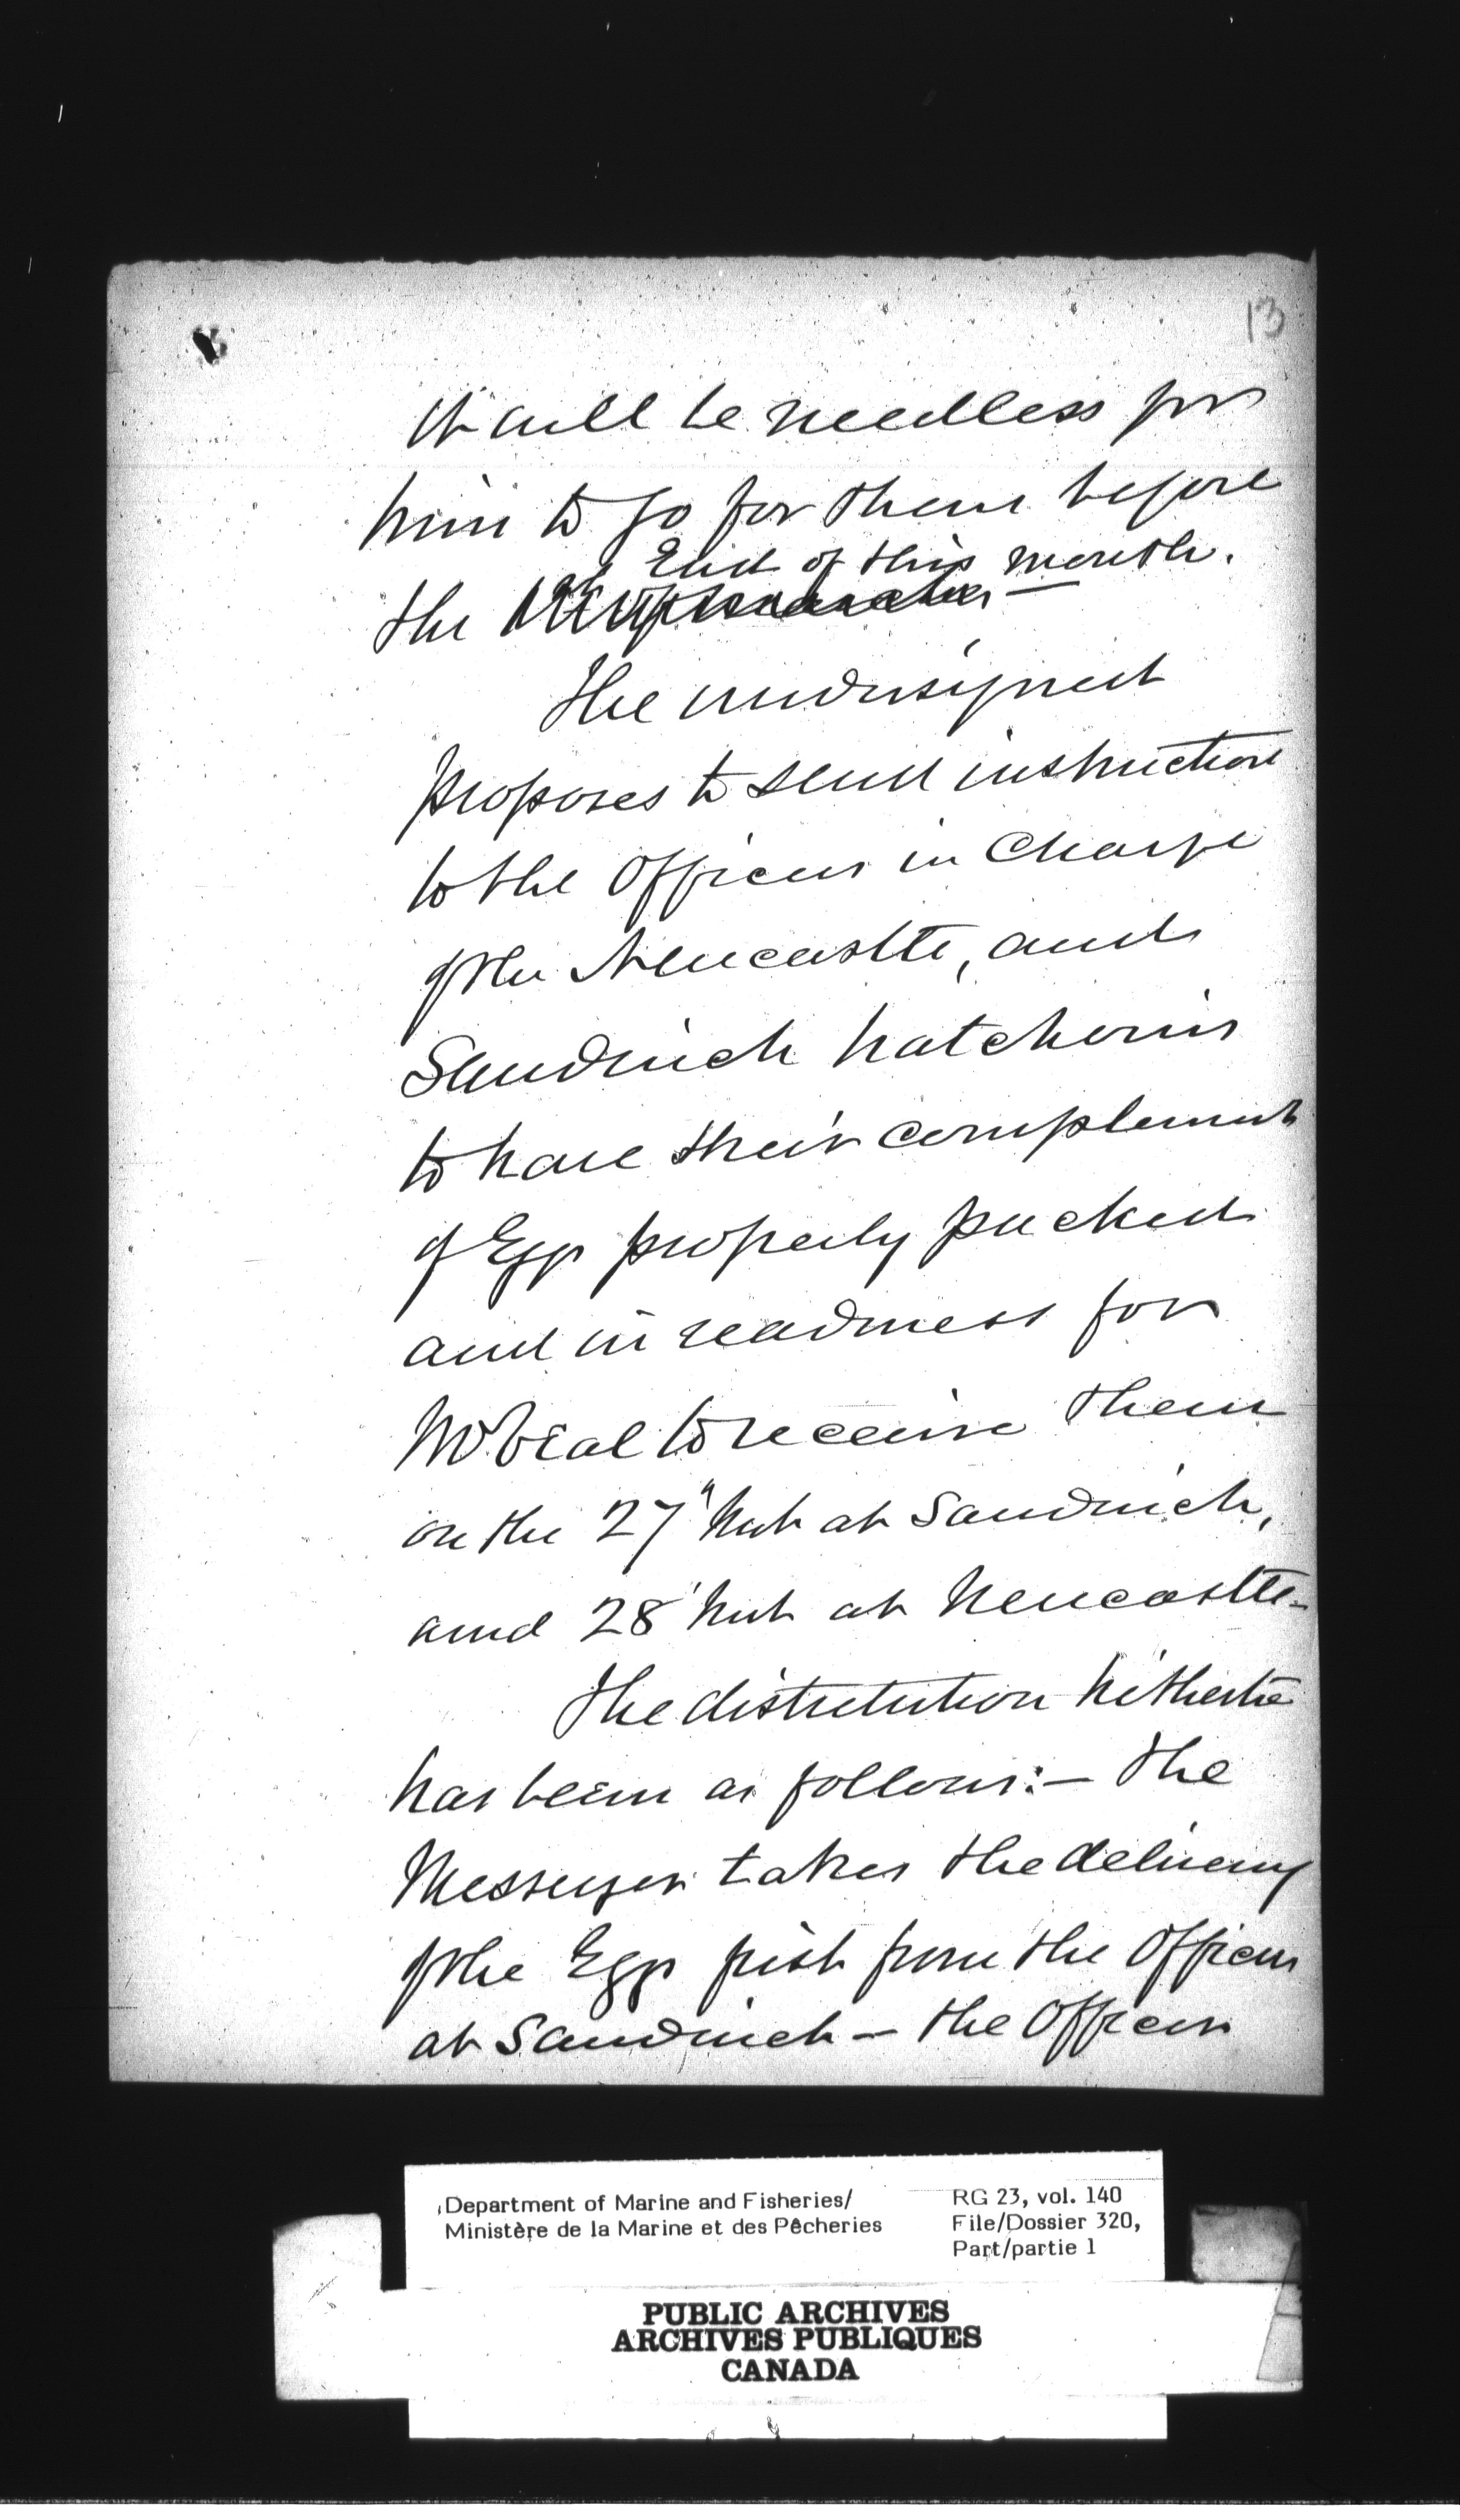 13
it will be needless for
him to go for them before
End of this month.
the
The undersigned
proposes to send instructions
to the Officers in Charge
of the Newcastle, and
Sandwich hatcheries
to have their complement
of Eggs properly packed
and in readiness for
to receive them
on the 27" at Sandwich,
and 28' at Newcastle—
The distribution hitherto
has been as follows:— The
Messenger takes the delivery
of the Eggs first from the Officer
at Sandwich — the Officer
Department of Marine and Fisheries/
Ministère de la Marine et des Pêcheries
RG 23, vol. 140
File/Dossier 320,
Part/partie 1
PUBLIC ARCHIVES
ARCHIVES PUBLIQUES
CANADA